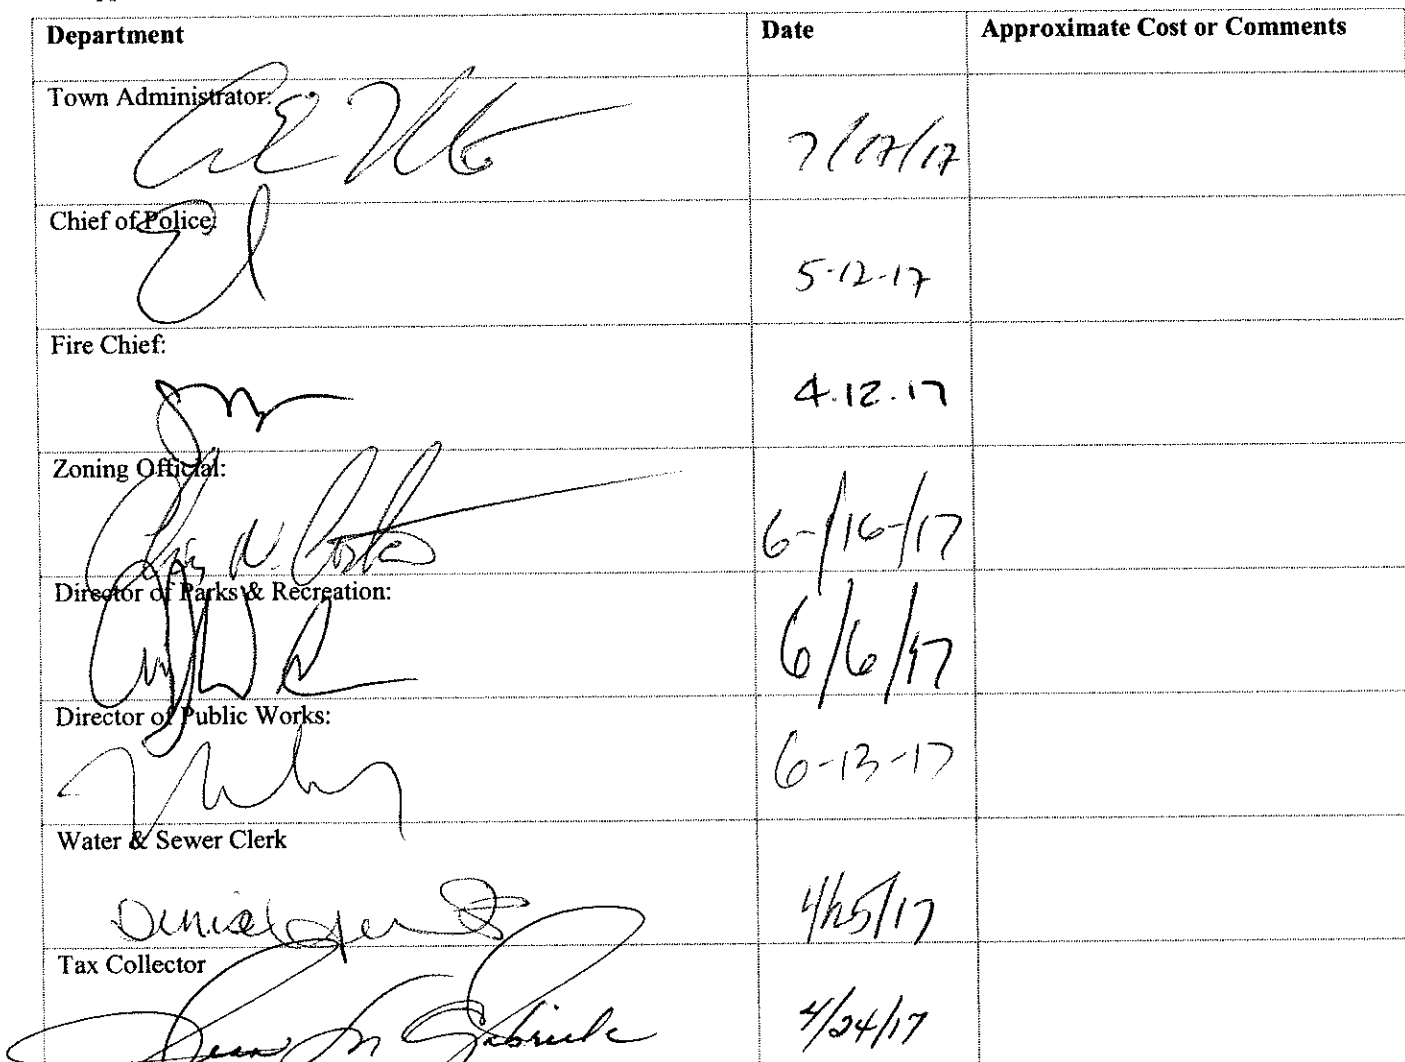 Department Date Approximate Cost or Comments
Town Administrator:
7/17/17
Chief of Police:
5-12-17
Fire Chief:
4.12.17
Zoning Official:
6-/16-/17
Director of Parks & Recreation:
6/6/17
Director of Public Works:
6-13-17
Water & Sewer Clerk
4/25/17
Tax Collector
Jean M Gabriele
4/24/17